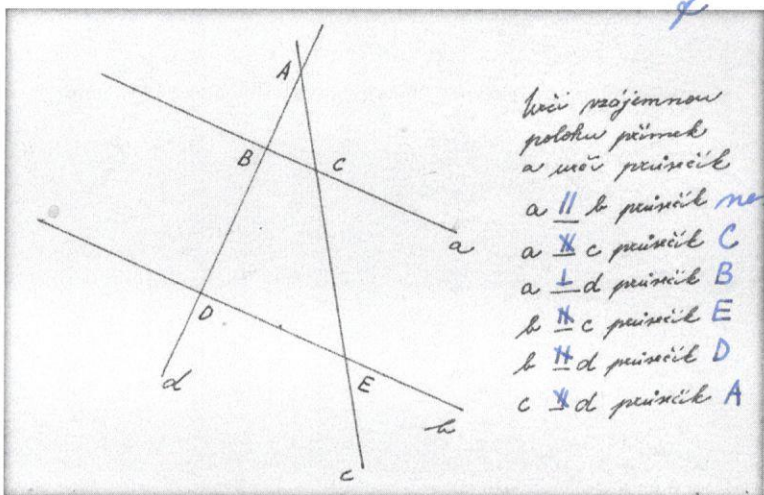 A
B
C
a
D
E
d
b
c
Urči vzájemnou
polohu přímek
a urči průsečík
a || b průsečík ne
a ∦ c průsečík C
a ⊥ d průsečík B
b ∦ c průsečík E
b ∦ d průsečík D
c ∦ d průsečík A